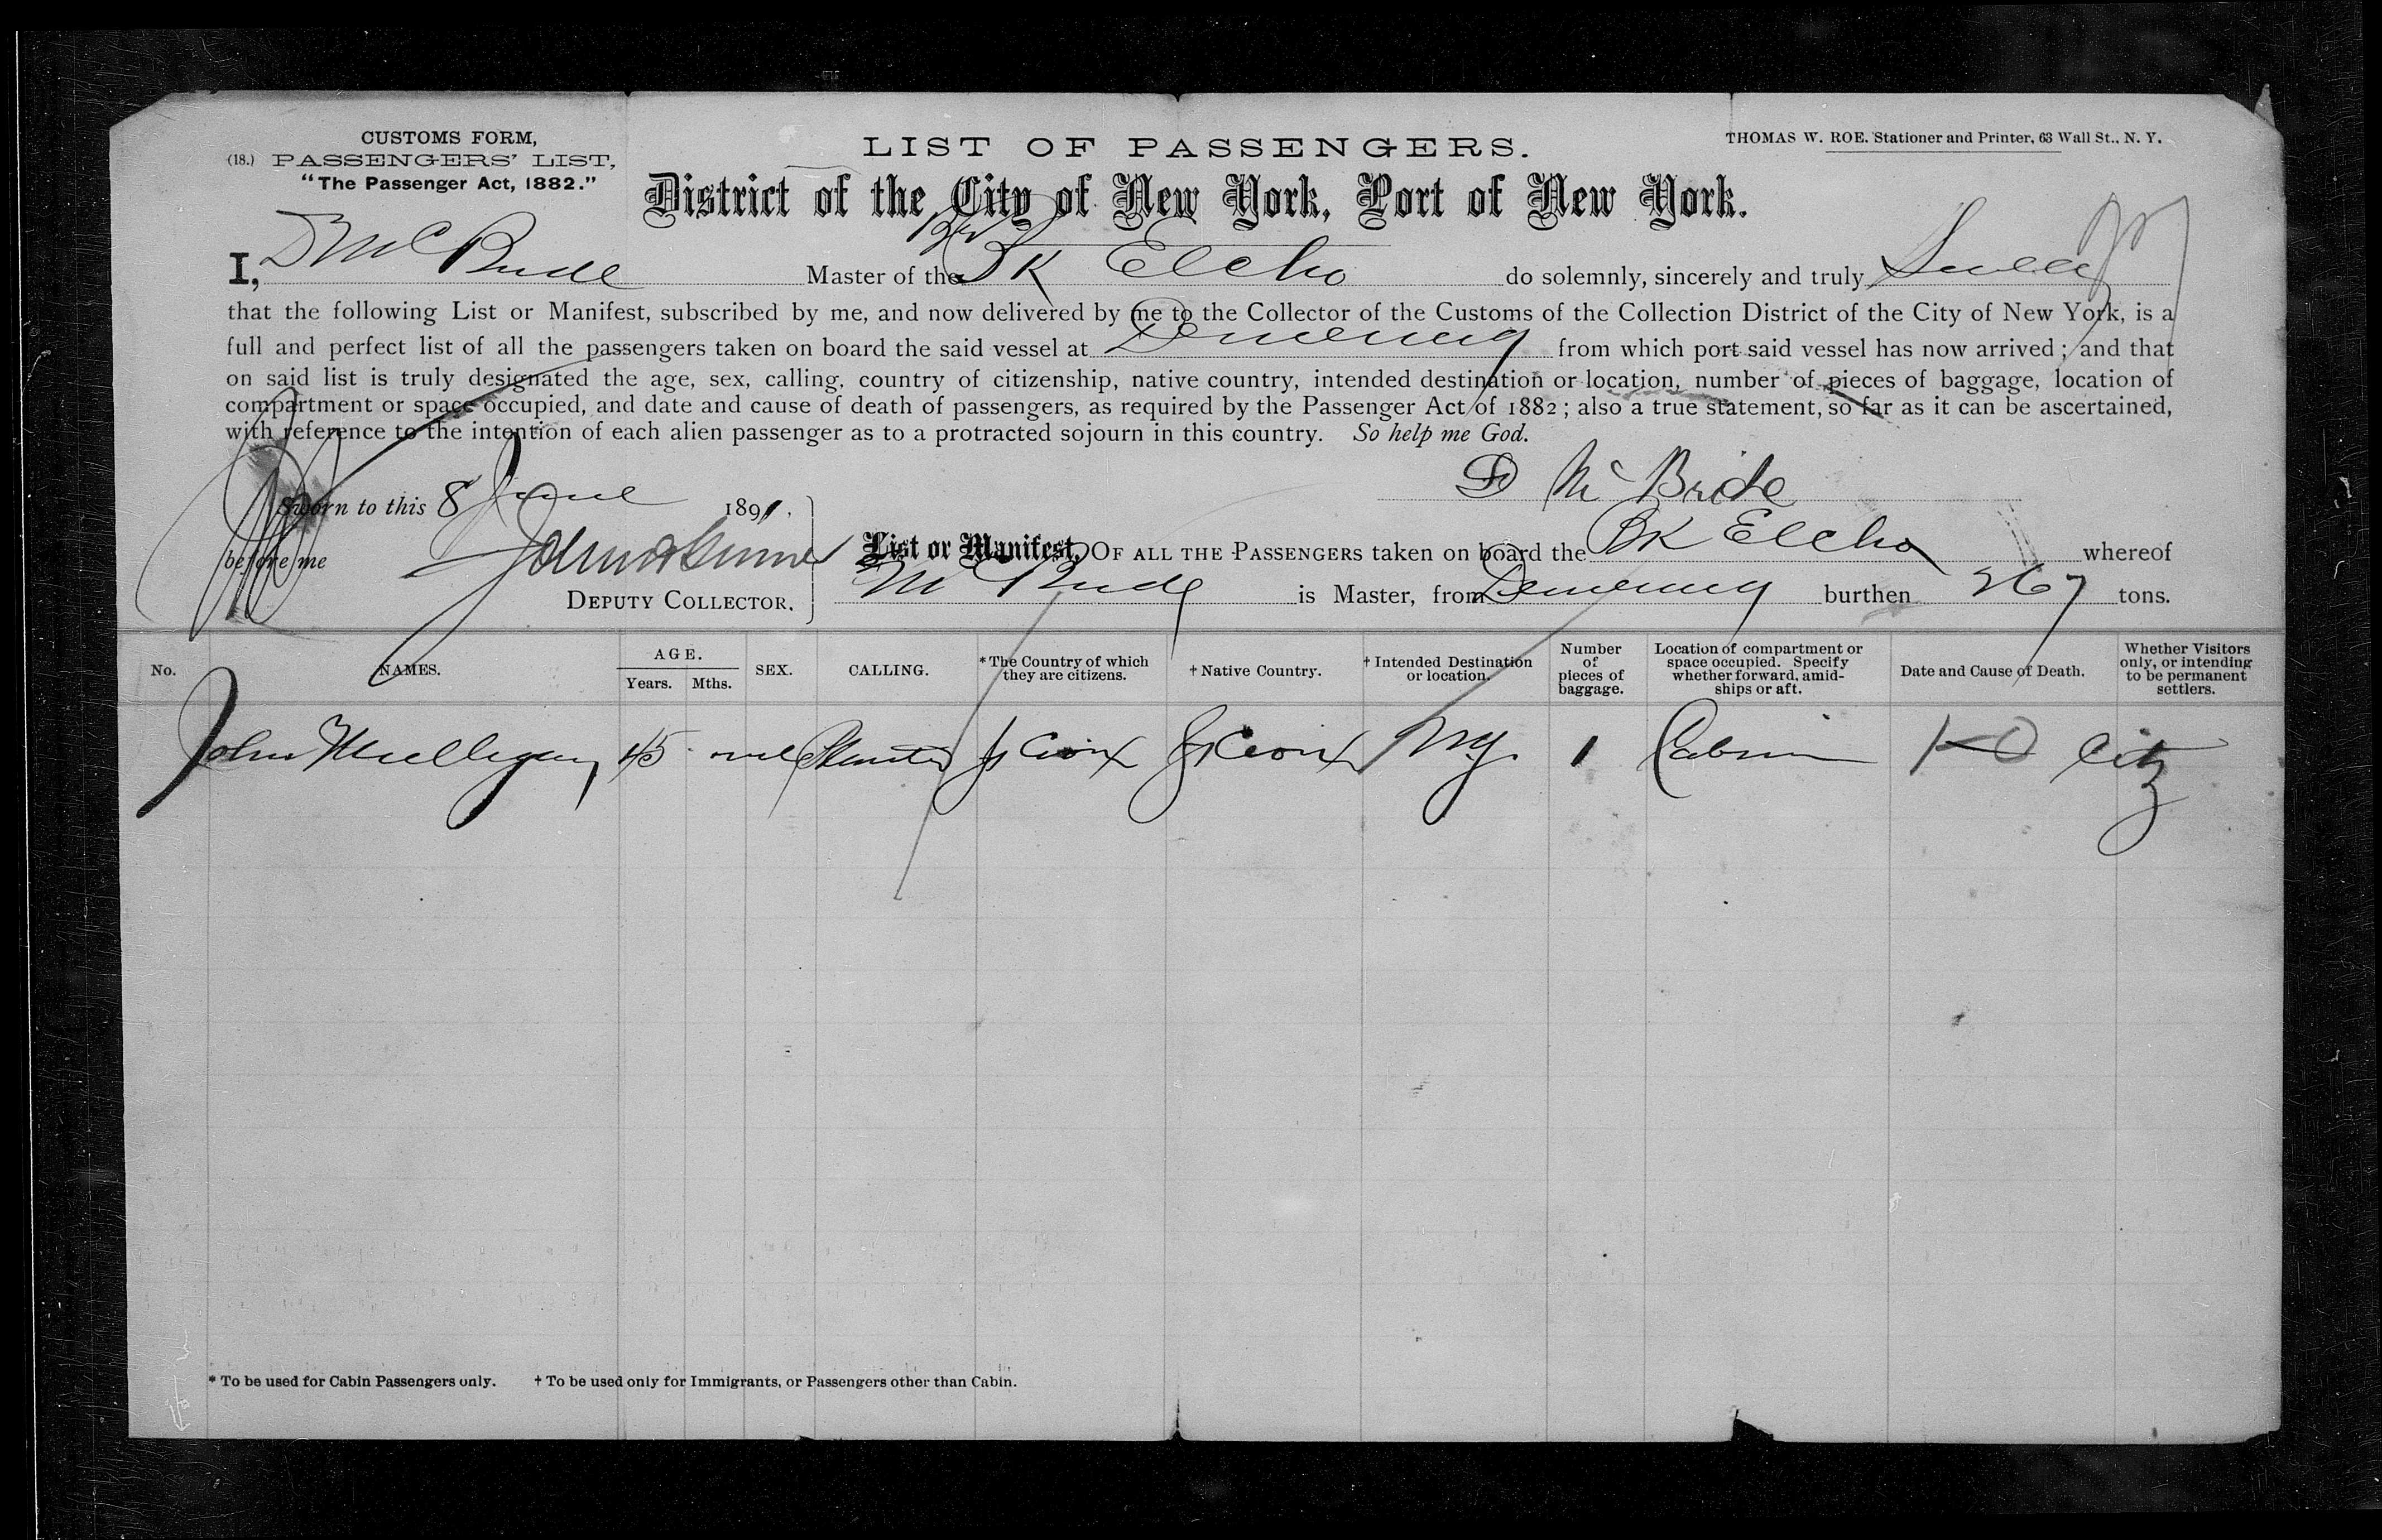 CUSTOMS FORM,
(18.) PASSENGERS' LIST,
"The Passenger Act, 1882."
LIST OF PASSENGERS.
THOMAS W. ROE. Stationer and Printer, 63 Wall St., N. Y.
District of the City of New York, Port of New York.
I, D McBride Master of the Bk Elcho do solemnly, sincerely and truly Swear
that the following List or Manifest, subscribed by me, and now delivered by me to the Collector of the Customs of the Collection District of the City of New York, is a
full and perfect list of all the passengers taken on board the said vessel at Demerary from which port said vessel has now arrived; and that
on said list is truly designated the age, sex, calling, country of citizenship, native country, intended destination or location, number of pieces of baggage, location of
compartment or space occupied, and date and cause of death of passengers, as required by the Passenger Act of 1882; also a true statement, so far as it can be ascertained,
with reference to the intention of each alien passenger as to a protracted sojourn in this country. So help me God.
D McBride
Sworn to this 8 June 1891.
before me
DEPUTY COLLECTOR.
List or Manifest, OF ALL THE PASSENGERS taken on board the BK Elcho whereof
McBride is Master, from Demerary burthen 267 tons.
No. NAMES. AGE. Years. Mths. SEX. CALLING. * The Country of which they are citizens. † Native Country. † Intended Destination or location. Number of pieces of baggage. Location of compartment or space occupied. Specify whether forward, amid-ships or aft. Date and Cause of Death. Whether Visitors only, or intending to be permanent settlers.
John Mulligan 45 Planter St Croix St Croix NY. 1 Cabin Citz
* To be used for Cabin Passengers only. † To be used only for Immigrants, or Passengers other than Cabin.